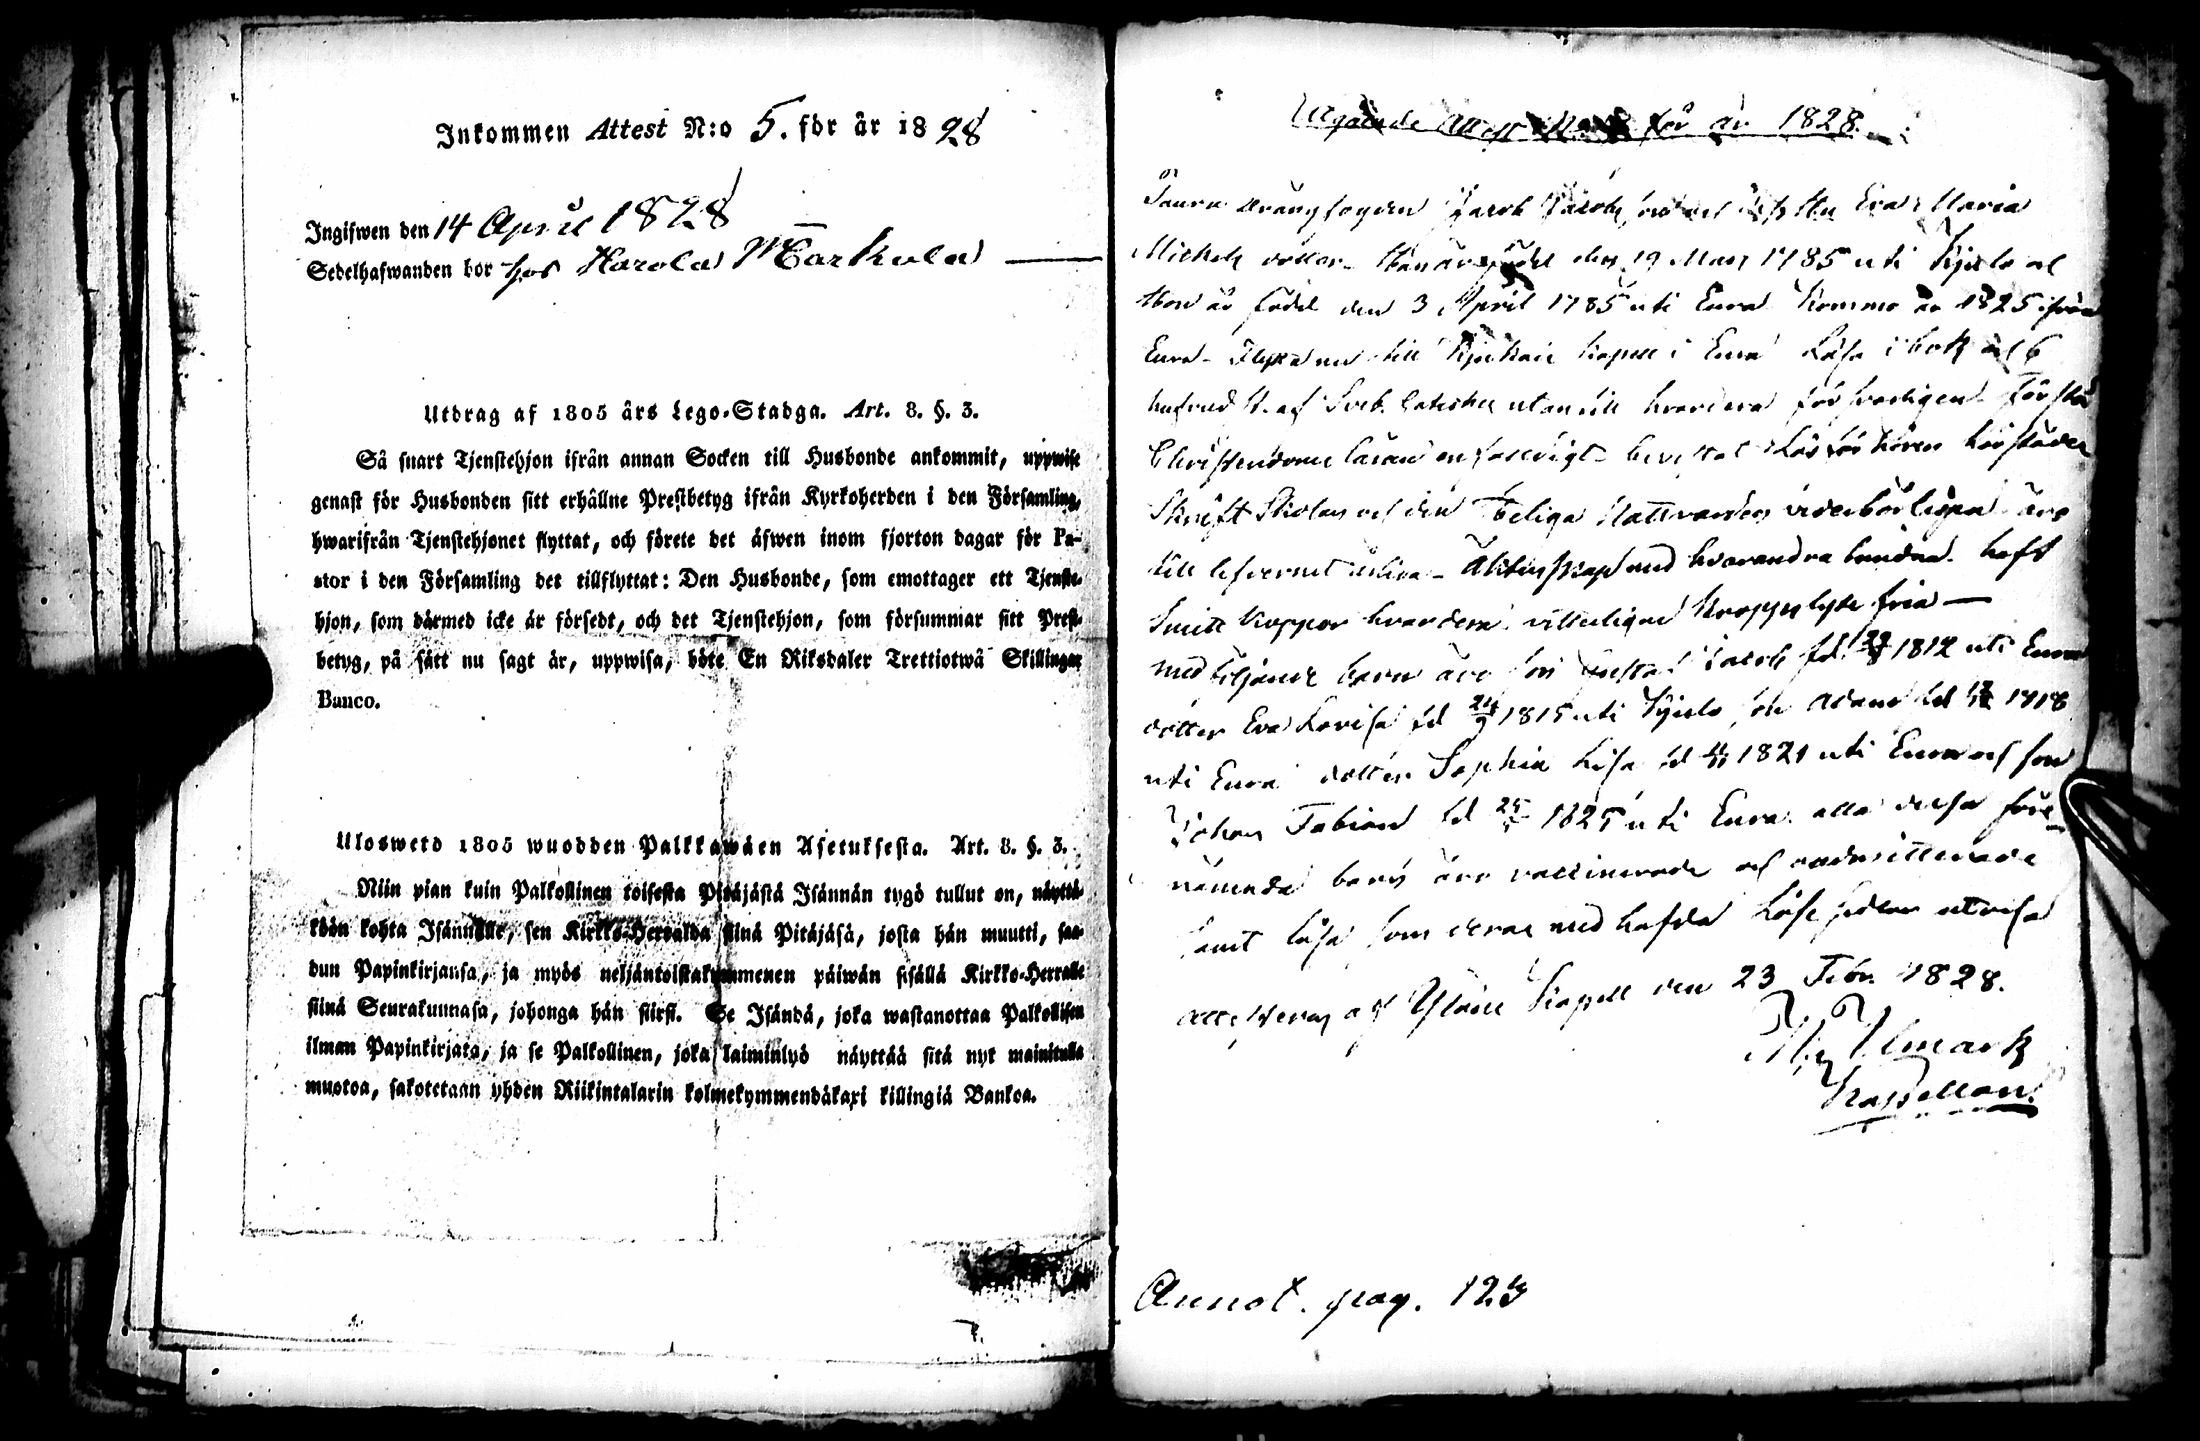 Inkommen Attest N:o 5. för år 1828
Ingifwen den 14 April 1828
Sedelhafwanden bor hos Harola Markula
Utdrag af 1805 års Lego-Stadga. Art. 8. §. 3.
Så snart Tjenstehjon ifrån annan Socken till Husbonde ankommit, uppwise
genast för Husbonden sitt erhållne Prestbetyg ifrån Kyrkoherden i den Församling,
hwarifrån Tjenstehjonet flyttat, och förete det äfwen inom fjorton dagar för Pa-
stor i den Församling det tillflyttat: Den Husbonde, som emottager ett Tjenste-
hjon, som därmed icke är försedt, och det Tjenstehjon, som försummar sitt Prest-
betyg, på sätt nu sagt är, uppwisa, böte En Riksdaler Trettiotwå Skillingar
Banco.
Uloswetd 1805 wuodden Palkkawäen Asetuksesta. Art. 8. §. 3.
Niin pian kuin Palkollinen toisesta Pitäjästä Isännän tygö tullut on, näyttä-
köön kohta Isännälle, sen Kirkko-Herralda siinä Pitäjäsä, josta hän muutti, saa-
dun Papinkirjansa, ja myös neljäntoistakymmenen päiwän sisällä Kirkko-Herralle
siinä Seurakunnasa, johonga hän siirsi. Se Isändä, joka wastanottaa Palkollisen
ilman Papinkirjata, ja se Palkollinen, joka laiminlyö näyttää sitä nyt mainitulla
muotoa, sakotetaan yhden Riikintalarin kolmekymmendäkaxi killingiä Bankoa.
Utgående Attest för år 1828.
drängfogden Jacob Eva Maria
Michels dotter. Han är född den 19 Maij 1785 uti Kjulo och
Hon är född den 3 April 1785 uti Eura Komne år 1825 ifrån
Eura. Flytta nu till Kjukais kapell i Eura Läsa i bok och 6
hufvud St. af Sveb. Cateches utan till hvardera försvarligen. Förstå
Christendoms läran enfaldigt. bevistat Läsförhören
Skrift Skolan och den Heliga Nattvarden vederbörligen äro
till lefvernet ärliga. Äktenskap med hvarandra bundna. haft
Smitt Koppor hvardera. Kroppslyte fria —
med följande barn äro son Gustaf Jacob fd. 1812 uti Eura
dotter Eva Lovisa fd 24/9 1815 uti Kjulo son Adam fd 1818
uti Eura dotter Sophia Lisa fd 1821 uti Eura och son
Johan Fabian fd 1825 uti Eura. alla dessa före-
nämnde barn äro vaccinerade och
samt läsa som deras med hafda Läse sedlar utvisa
Attesteras af Yläne Kapell den 23 Febr. 1828.
Ulmark
Kapellan.
Annot. pag. 123